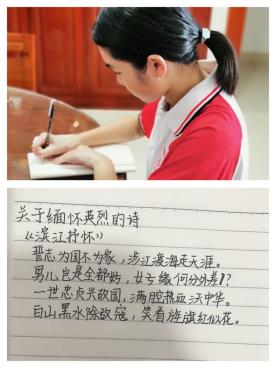 关于缅怀英烈的诗
《滨江抒怀》
誓志为国不为家，涉江渡海走天涯。
男儿岂是全都好，女子缘何分外差？
一世忠贞兴故国，满腔热血沃中华。
白山黑水除敌寇，笑看旌旗红似花。